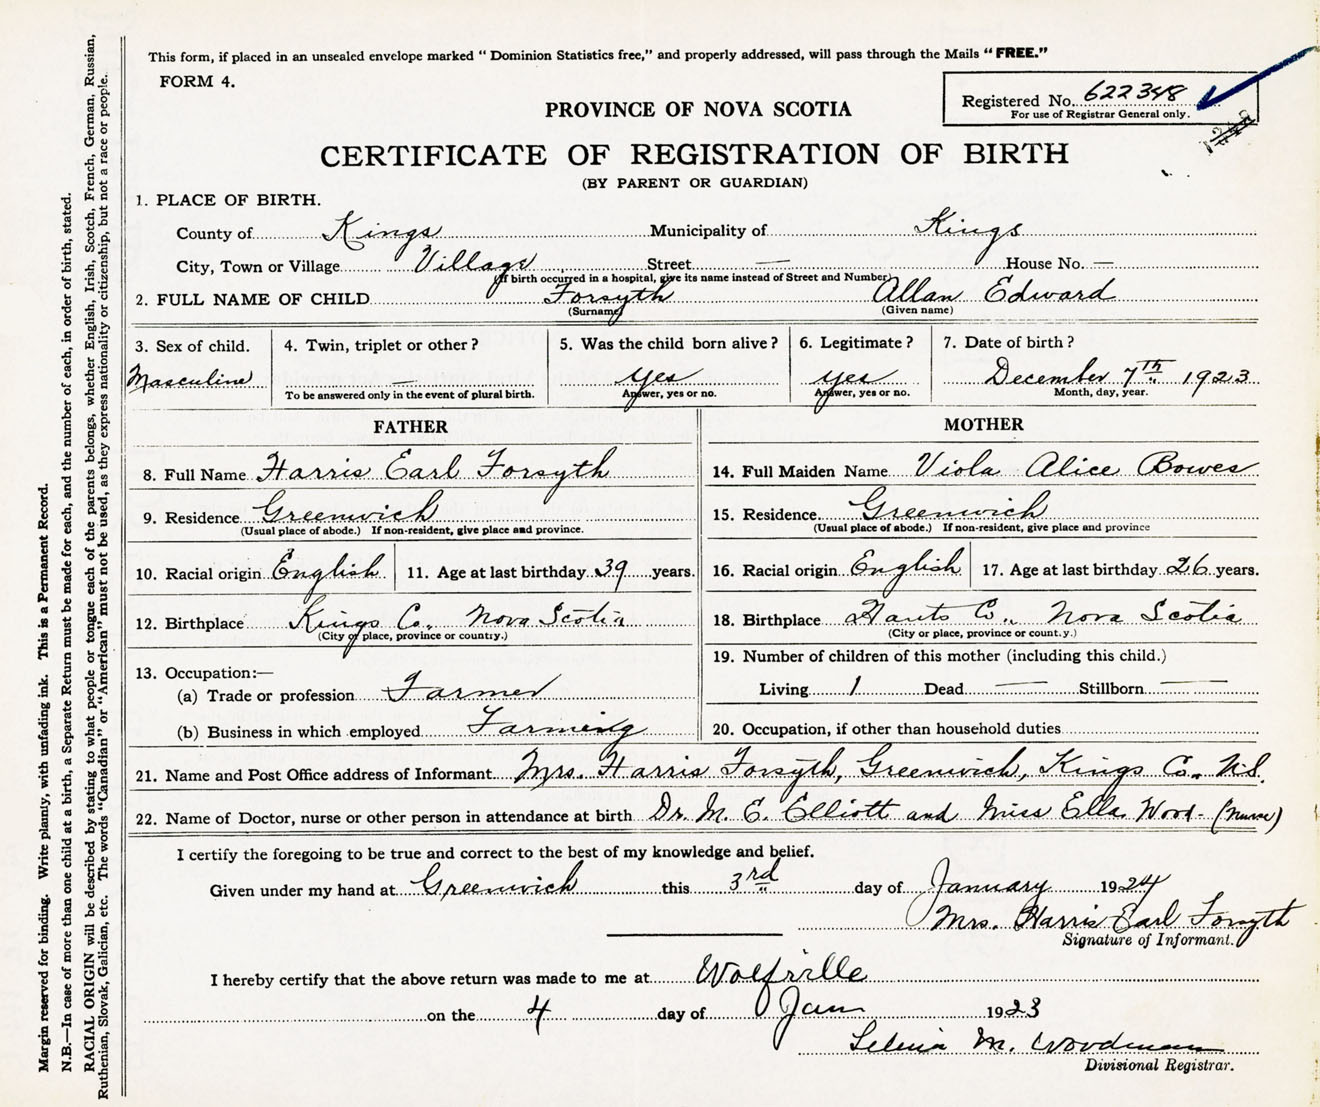 This form, if placed in an unsealed envelope marked “ Dominion Statistics free,” and properly addressed, will pass through the Mails “ FREE.”
FORM 4.
Registered No. 622348
For use of Registrar General only.
PROVINCE OF NOVA SCOTIA
CERTIFICATE OF REGISTRATION OF BIRTH
(BY PARENT OR GUARDIAN)
1. PLACE OF BIRTH.
County of Kings Municipality of Kings
City, Town or Village Village Street — House No. —
(If birth occurred in a hospital, give its name instead of Street and Number)
2. FULL NAME OF CHILD Forsyth Allan Edward
(Surname) (Given name)
3. Sex of child. 4. Twin, triplet or other? 5. Was the child born alive? 6. Legitimate? 7. Date of birth?
Masculine — yes yes December 7th 1923
To be answered only in the event of plural birth. Answer, yes or no. Answer, yes or no. Month, day, year.
FATHER
8. Full Name Harris Earl Forsyth
9. Residence Greenwich
(Usual place of abode.) If non-resident, give place and province.
10. Racial origin English 11. Age at last birthday 39 years.
12. Birthplace Kings Co., Nova Scotia
(City or place, province or country.)
13. Occupation:—
(a) Trade or profession Farmer
(b) Business in which employed Farming
MOTHER
14. Full Maiden Name Viola Alice Bowes
15. Residence Greenwich
(Usual place of abode.) If non-resident, give place and province
16. Racial origin English 17. Age at last birthday 26 years.
18. Birthplace Hants Co., Nova Scotia
(City or place, province or count.y.)
19. Number of children of this mother (including this child.)
Living 1 Dead — Stillborn —
20. Occupation, if other than household duties
21. Name and Post Office address of Informant Mrs. Harris Forsyth, Greenwich, Kings Co. N.S.
22. Name of Doctor, nurse or other person in attendance at birth Dr. M. E. Elliott and Miss Ella Wood - (nurse)
I certify the foregoing to be true and correct to the best of my knowledge and belief.
Given under my hand at Greenwich this 3rd day of January 1924
Mrs. Harris Earl Forsyth
Signature of Informant.
I hereby certify that the above return was made to me at Wolfville
on the 4 day of Jan 1923
M. Woodman
Divisional Registrar.
Margin reserved for binding. Write plainly, with unfading ink. This is a Permanent Record.
N.B.—In case of more than one child at a birth, a Separate Return must be made for each, and the number of each, in order of birth, stated.
RACIAL ORIGIN will be described by stating to what people or tongue each of the parents belongs, whether English, Irish, Scotch, French, German, Russian,
Ruthenian, Slovak, Galician, etc. The words “Canadian” or “American” must not be used, as they express nationality or citizenship, but not a race or people.